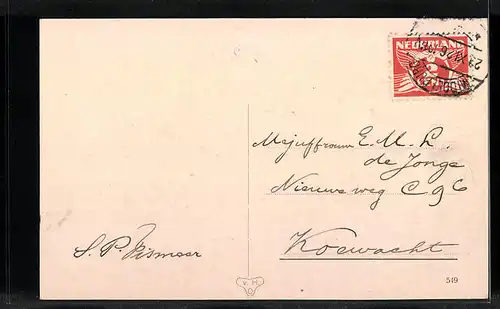 NEDERLAND
Mejuffrouw E. M. L.
de Jonge
Nieuwe weg C 96
Koewacht
S. P.
v. H.
519